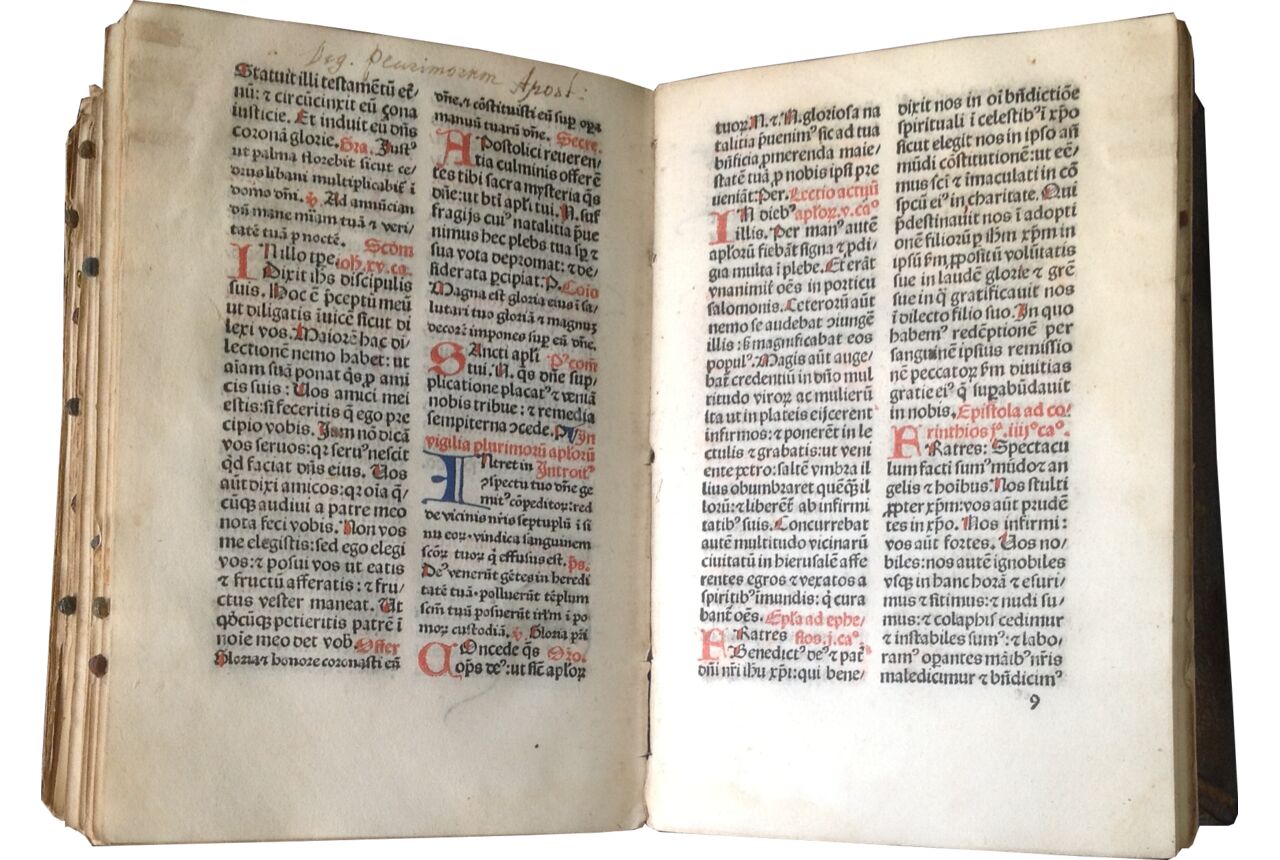 Vig. plurimorum Apost:
Statuit illi testamētū et̄/
nū: ⁊ circūcinxit eū ȝona
iusticie. Et induit eū dn̄s
coronā glorie. Gra. Just⁹
ut palma florebit sicut ce/
drus libani multiplicabit̄ ī
domo dn̄i. ℣ Ad annūcian
dū mane mīam tuā ⁊ veri/
tatē tuā ꝑ noctē. Scd̄m
IN illo tp̄e ioh̄. xv. ca.
Dixit ih̄s discipulis
suis. Hoc ē p̄ceptū meū
ut diligatis īuicē sicut di
lexi vos. Maiorē hac di/
lectionē nemo habet: ut
aīam suā ponat q̄s ꝓ ami
cis suis: Uos amici mei
estis: si feceritis q̄ ego pre
cipio vobis. Jam nō dicā
vos seruos: qr seru⁹ nescit
qd̄ faciat dn̄s eius. Uos
aūt dixi amicos: qr oīa q̄/
cūq̄ audiui a patre meo
nota feci vobis. Non vos
me elegistis: sed ego elegi
vos: ⁊ posui vos ut eatis
⁊ fructū afferatis: ⁊ fru/
ctus vester maneat. Ut
qd̄cūq̄ petieritis patrē ī
noīe meo det vob̄. Offer
Gloria ⁊ honore coronasti eū
dn̄e, ⁊ cōstituisti eū sup̄ oꝑa
manuū tuarū dn̄e. Secre.
APostolici reueren/
tia culminis offerē
tes tibi sacra mysteria q̄s
dn̄e: ut bt̄i apl̄i tui. N. suf
fragijs cui⁹ natalitia p̄ue
nimus hec plebs tua sp̄ ⁊
sua vota depromat: ⁊ de/
siderata ꝑcipiat: P. Cōio
Magna est gloria eius ī sa/
lutari tuo gloriā ⁊ magnuȝ
decorē impones sup̄ eū dn̄e.
SAncti apl̄i P⁹com̄
tui. N. q̄s dn̄e sup/
plicatione placat⁹ ⁊ veniā
nobis tribue: ⁊ remedia
sempiterna ↄcede. P In
vigilia plurimorū aplōrū
INtret in Introit⁹
ↄspectu tuo dn̄e ge
mit⁹ cōpeditoꝝ: red
de vicinis nr̄is septuplū ī si
nu eoꝝ · vindica sanguinem
scōꝝ tuoꝝ q̄ effusus est. p̄s.
De⁹ venerūt gētes in heredi
tatē tuā · polluerūt tēplum
scm̄ tuū posuerūt irl̄m ī po
moꝝ custodiā. ℣ Gloria pr̄i
COncede q̄s Oro.
oꝑs de⁹: ut sic̄ ap̄loꝝ
tuoꝝ. N. ⁊. N. gloriosa na
talitia p̄uenim⁹ sic ad tua
bn̄ficia ꝓmerenda maie/
statē tuā ꝓ nobis ipsi pre
ueniāt: Per. Lectio actuū
IN dieb⁹ ap̄loꝝ. v. ca⁰
illis. Per man⁹ autē
apl̄orū fiebāt signa ⁊ ꝓdi/
gia multa ī plebe. Et erāt
vnanimit̄ oēs in porticu
salomonis. Ceterorū aūt
nemo se audebat ↄiungē
illis: s̄ magnificabat eos
popul⁹. Magis aūt auge/
bat̄ credentiū in dn̄o mul
titudo viroꝝ ac mulierū
ita ut in plateis eijscerent
infirmos: ⁊ ponerēt in le
ctulis ⁊ grabatis: ut veni
ente petro: saltē vmbra il
lius obumbraret quēq̄ il
lorū: ⁊ liberēt̄ ab infirmi
tatib⁹ suis. Concurrebat
autē multitudo vicinarū
ciuitatū in hierusalē affe
rentes egros ⁊ vexatos a
spiritib⁹ imundis: q̄ cura
bant̄ oēs. Epl̄a ad ephe/
FRatres: sios. j. ca⁰.
Benedict⁹ de⁹ ⁊ pat̄
dn̄i nr̄i ih̄u xp̄i: qui bene/
dixit nos in oī bn̄dictiōe
spirituali ī celestib⁹ ī xp̄o
sicut elegit nos in ipso an̄
mūdi cōstitutionē: ut eē/
mus scī ⁊ īmaculati in cō
spcū ei⁹ in charitate. Qui
p̄destinauit nos ī adopti
onē filiorū ꝑ ih̄m xp̄m in
ipsū s̄m ꝓpositū volūtatis
sue in laudē glorie ⁊ grē
sue in q̄ gratificauit nos
ī dilecto filio suo. In quo
habem⁹ redēptionē per
sanguinē ipsius remissio
nē peccatoꝝ s̄m diuitias
gratie ei⁹ q̄ supabūdauit
in nobis. Epistola ad co/
FRatres: rinthios j⁰. iiij⁰ ca⁰.
Spectacu
lum facti sum⁹ mūdo ⁊ an
gelis ⁊ hoībus. Nos stulti
ꝓpter xp̄m: vos aūt prudē
tes in xp̄o. Nos infirmi:
vos aūt fortes. Uos no/
biles: nos autē ignobiles
vsq̄ in hanc horā ⁊ esuri/
mus ⁊ sitimus: ⁊ nudi su/
mus: ⁊ colaphis cedimur
⁊ instabiles sum⁹: ⁊ labo/
ram⁹ oꝑantes māib⁹ nr̄is
maledicimur ⁊ bn̄dicim⁹
9